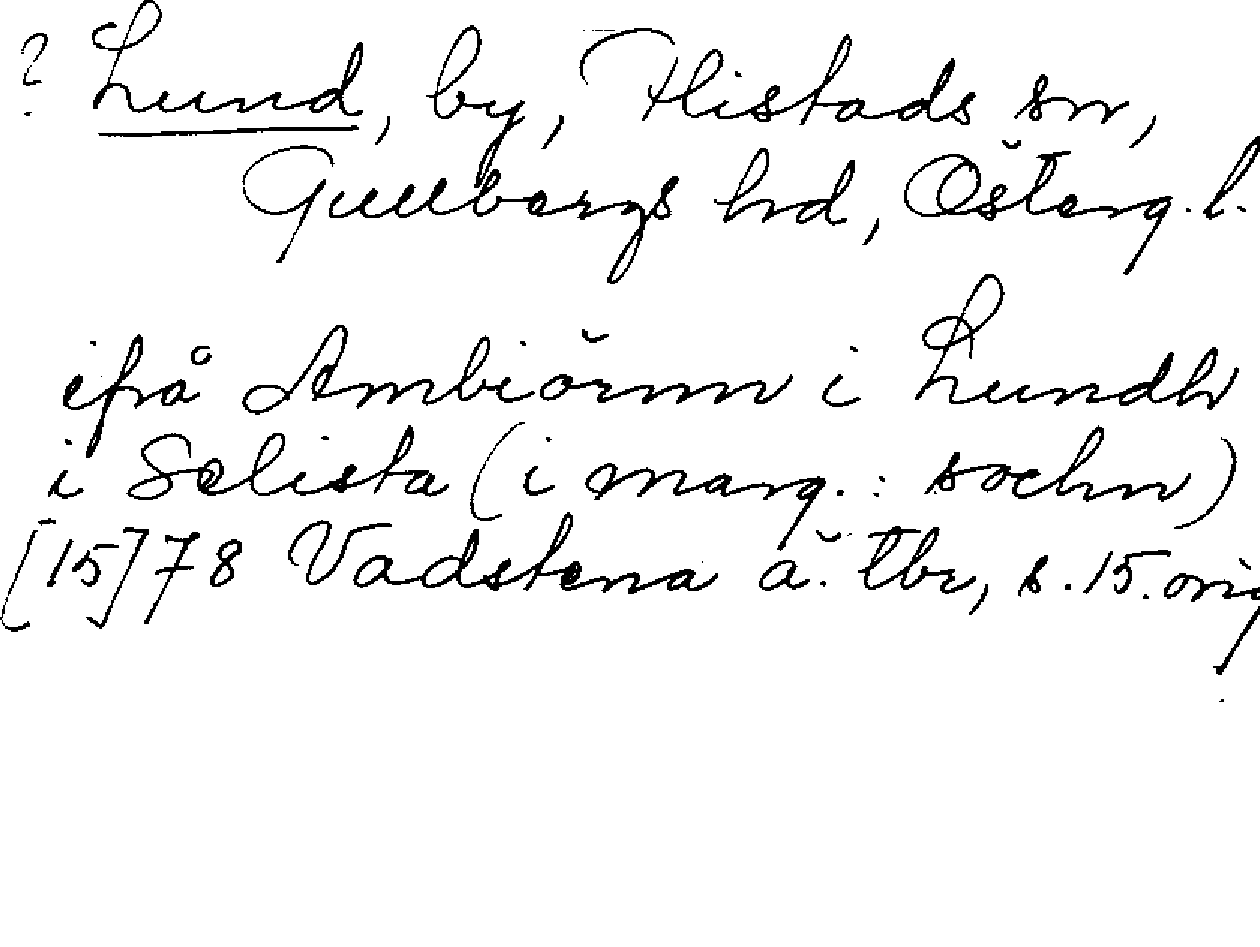 ? Lund, by, Flistads sn,
Gullbergs hd, Österg. l.
ifrå Ambiörnn i Lundh
i Selista (i marg.: sochn)
[15]78 Vadstena ä. tbr, s. 15. orig